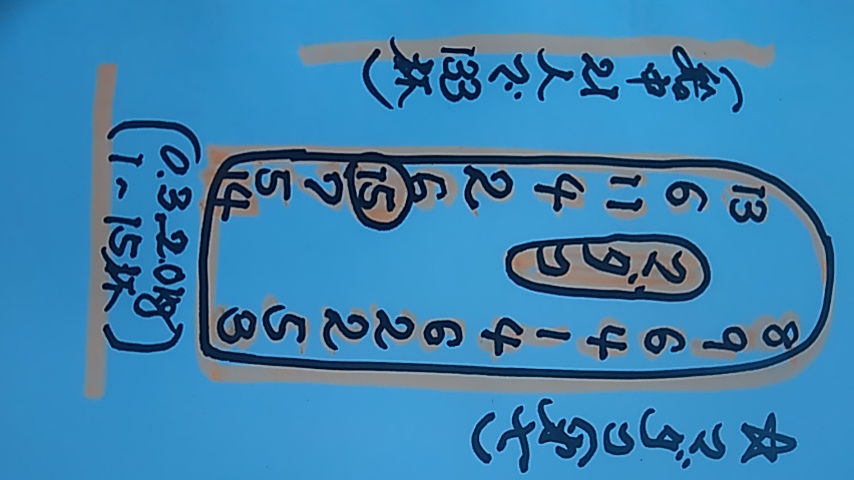 ☆マダコ
13 8
6 9
11 6
4 4
マダコ
2 1
6 4
15 6
7 2
5 2
14 5
3
(船中21人で133杯)
(0.3-2.0kg
1~15杯)